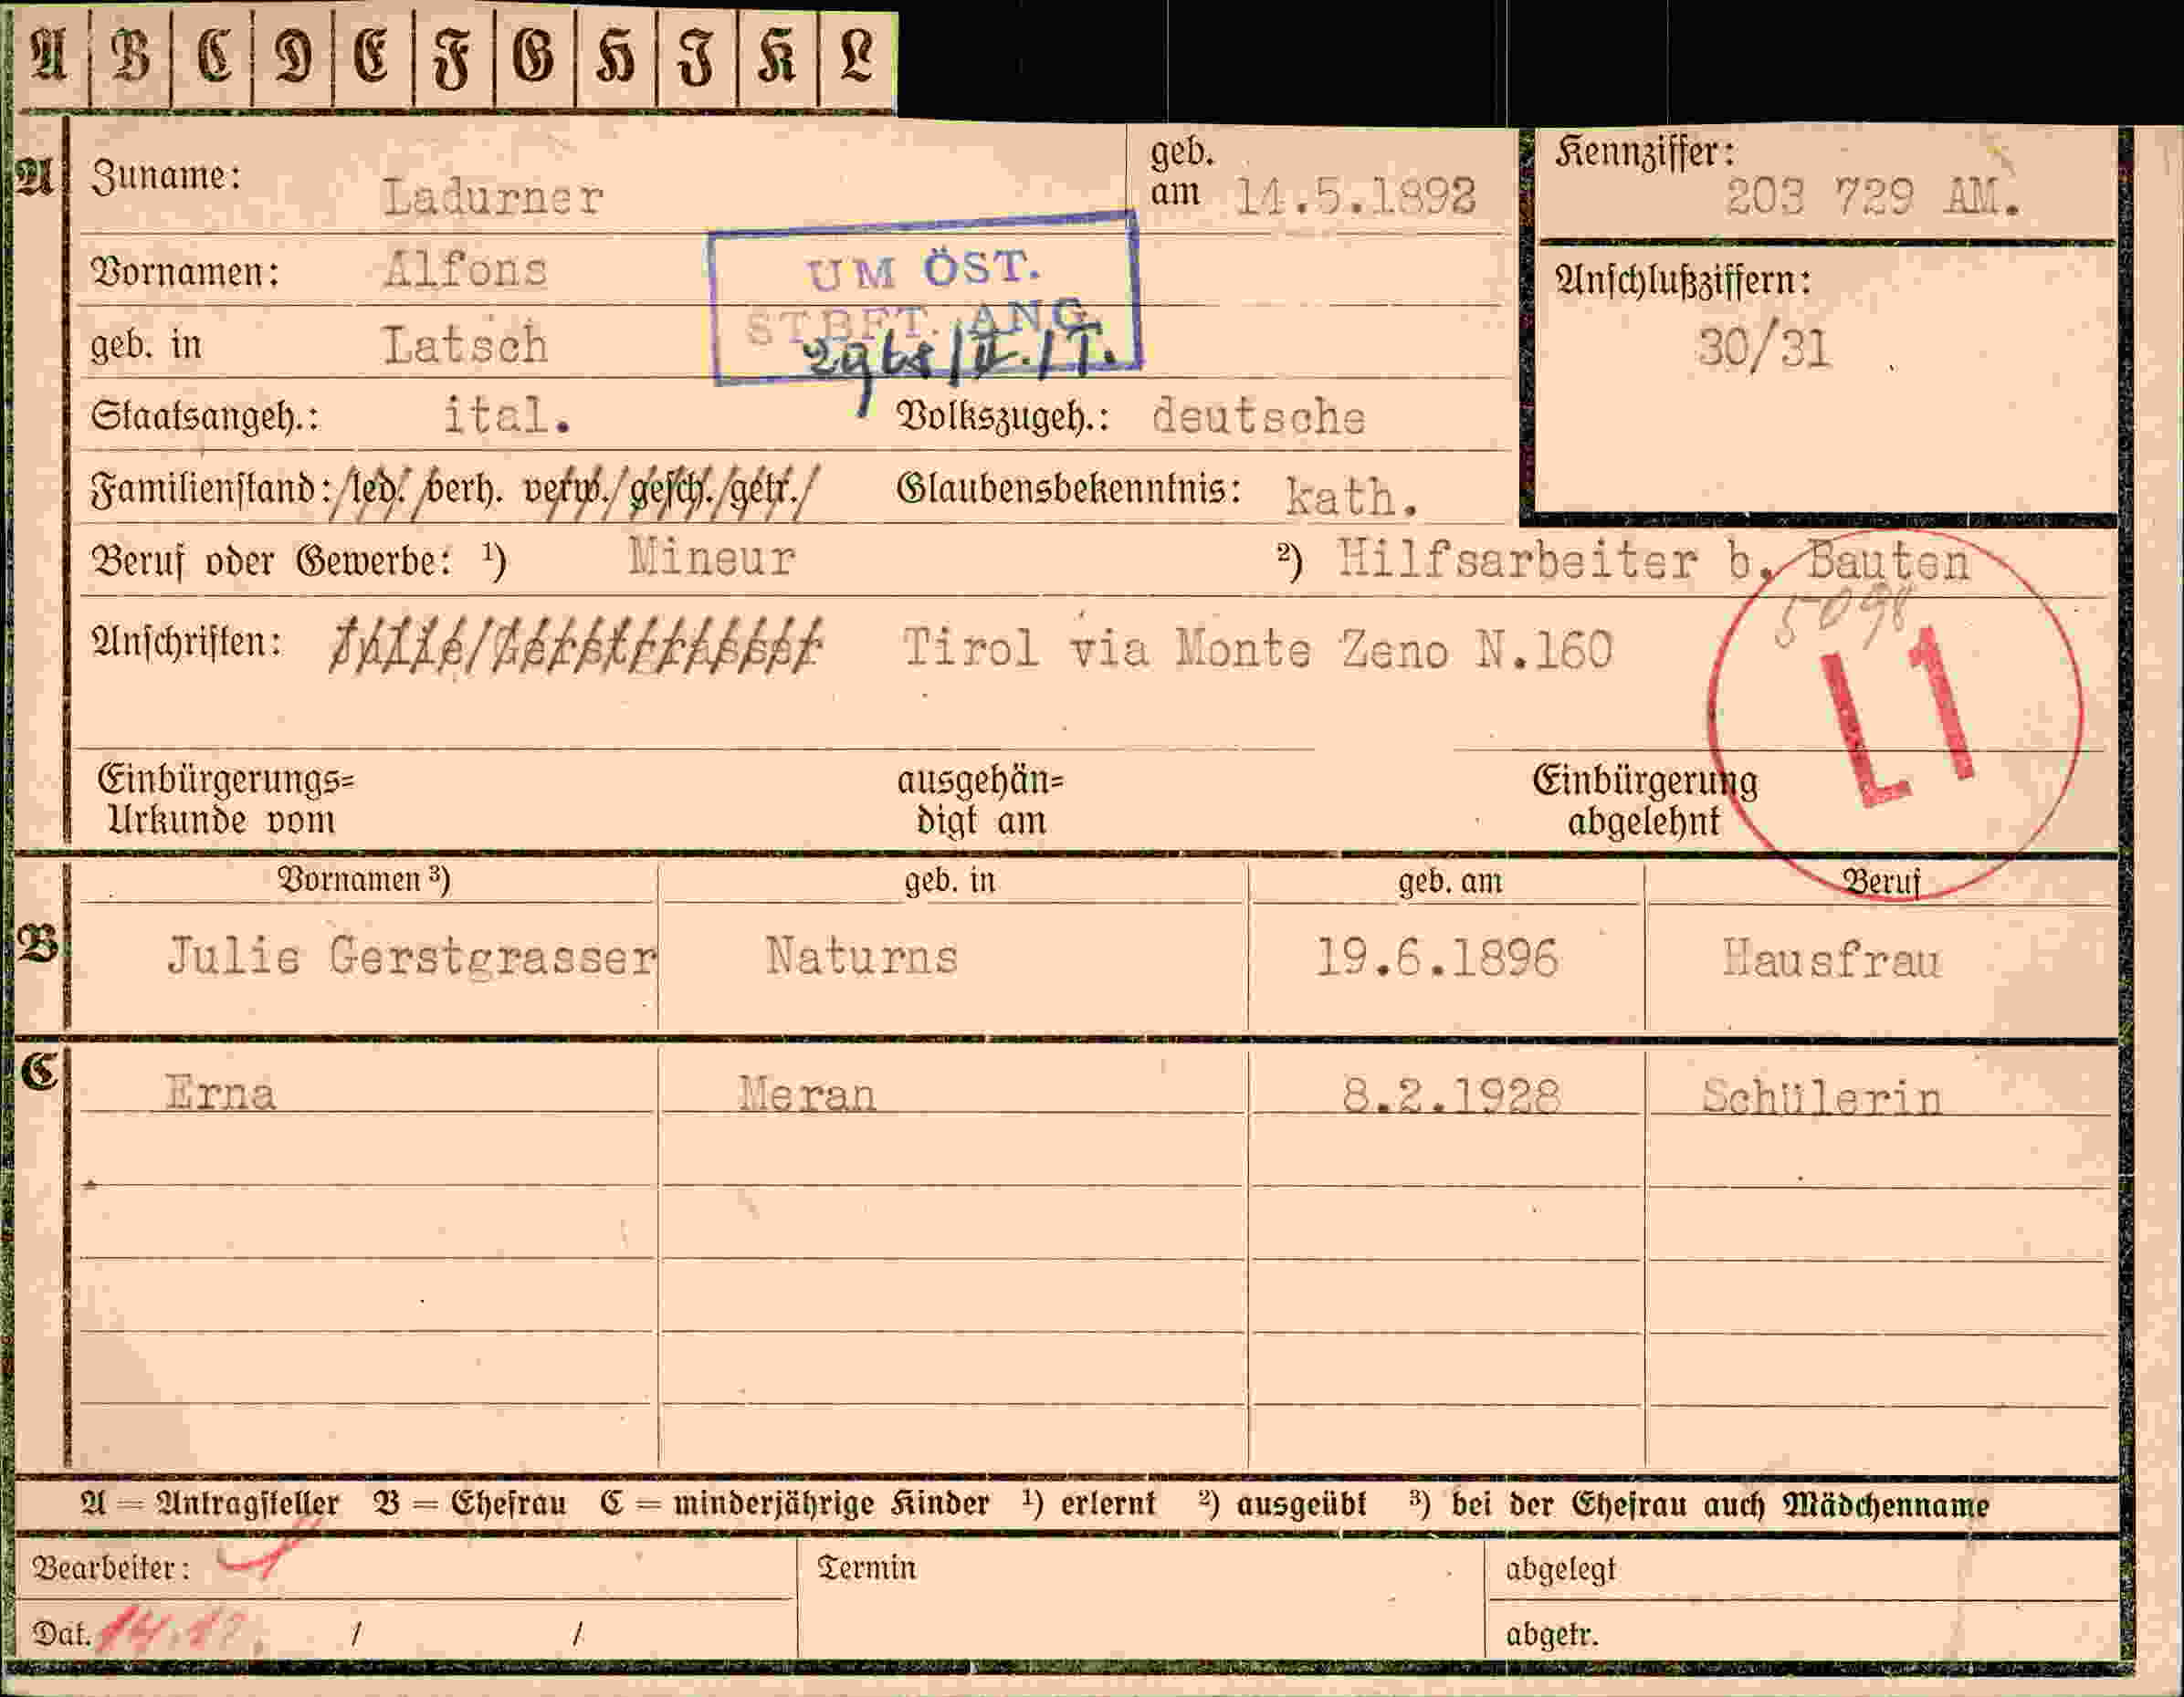 A B C D E F G H I K L
A Zuname: Ladurner geb. am 14.5.1892 Kennziffer: 203 729 AM.
Vornamen: Alfons
UM ÖST.
STBFT. ANG.
Anschlußziffern: 30/31
geb. in Latsch
Staatsangeh.: ital. Volkszugeh.: deutsche
Familienstand: led. verh. verw. gesch. getr. Glaubensbekenntnis: kath.
Beruf oder Gewerbe: ¹) Mineur ²) Hilfsarbeiter b. Bauten
5098
Anschriften: Tirol via Monte Zeno N.160
L1
Einbürgerungs= Urkunde vom ausgehän= digt am Einbürgerung abgelehnt
Vornamen ³) geb. in geb. am Beruf
B Julie Gerstgrasser Naturns 19.6.1896 Hausfrau
C Erna Meran 8.2.1928 Schülerin
A = Antragsteller B = Ehefrau C = minderjährige Kinder ¹) erlernt ²) ausgeübt ³) bei der Ehefrau auch Mädchenname
Bearbeiter: Termin abgelegt
Dat. / / abgetr.